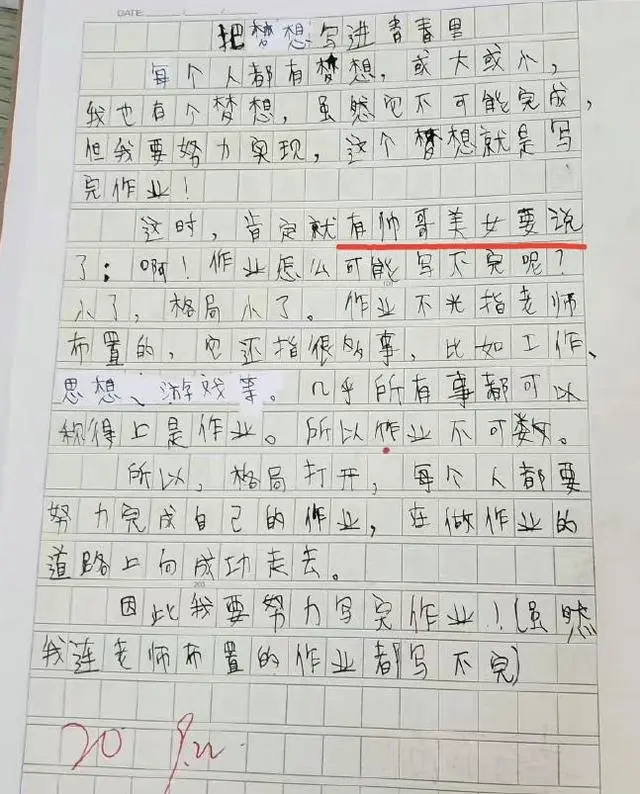 DATE
把梦想写进青春里
每个人都有梦想，或大或小，
我也有个梦想，虽然它不可能完成，
但我要努力实现，这个梦想就是写
完作业！
这时，肯定就有帅哥美女要说
了：啊！作业怎么可能写不完呢？
小了，格局小了。作业不光指老师
布置的，它还指很多事，比如工作、
思想、游戏事。几乎所有事都可以
称得上是作业。所以作业不可数。
所以，格局打开，每个人都要
努力完成自己的作业，在做作业的
道路上向成功走去。
因此我要努力写完作业！(虽然
我连老师布置的作业都写不完)
20 9.22